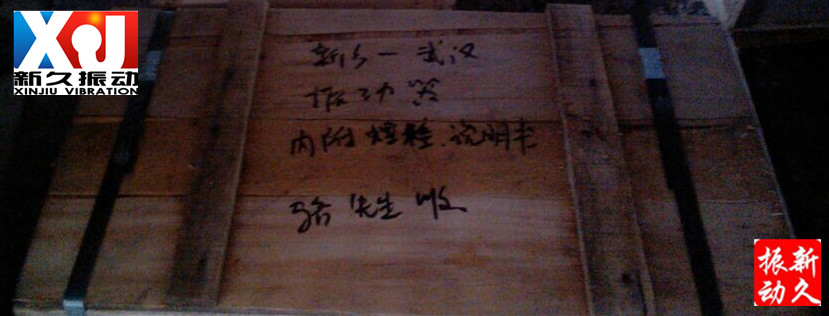 XJ
新久振动
XINJIU VIBRATION
新乡一武汉
振动器
内附煤种、说明书
骆先生收
新久
振动